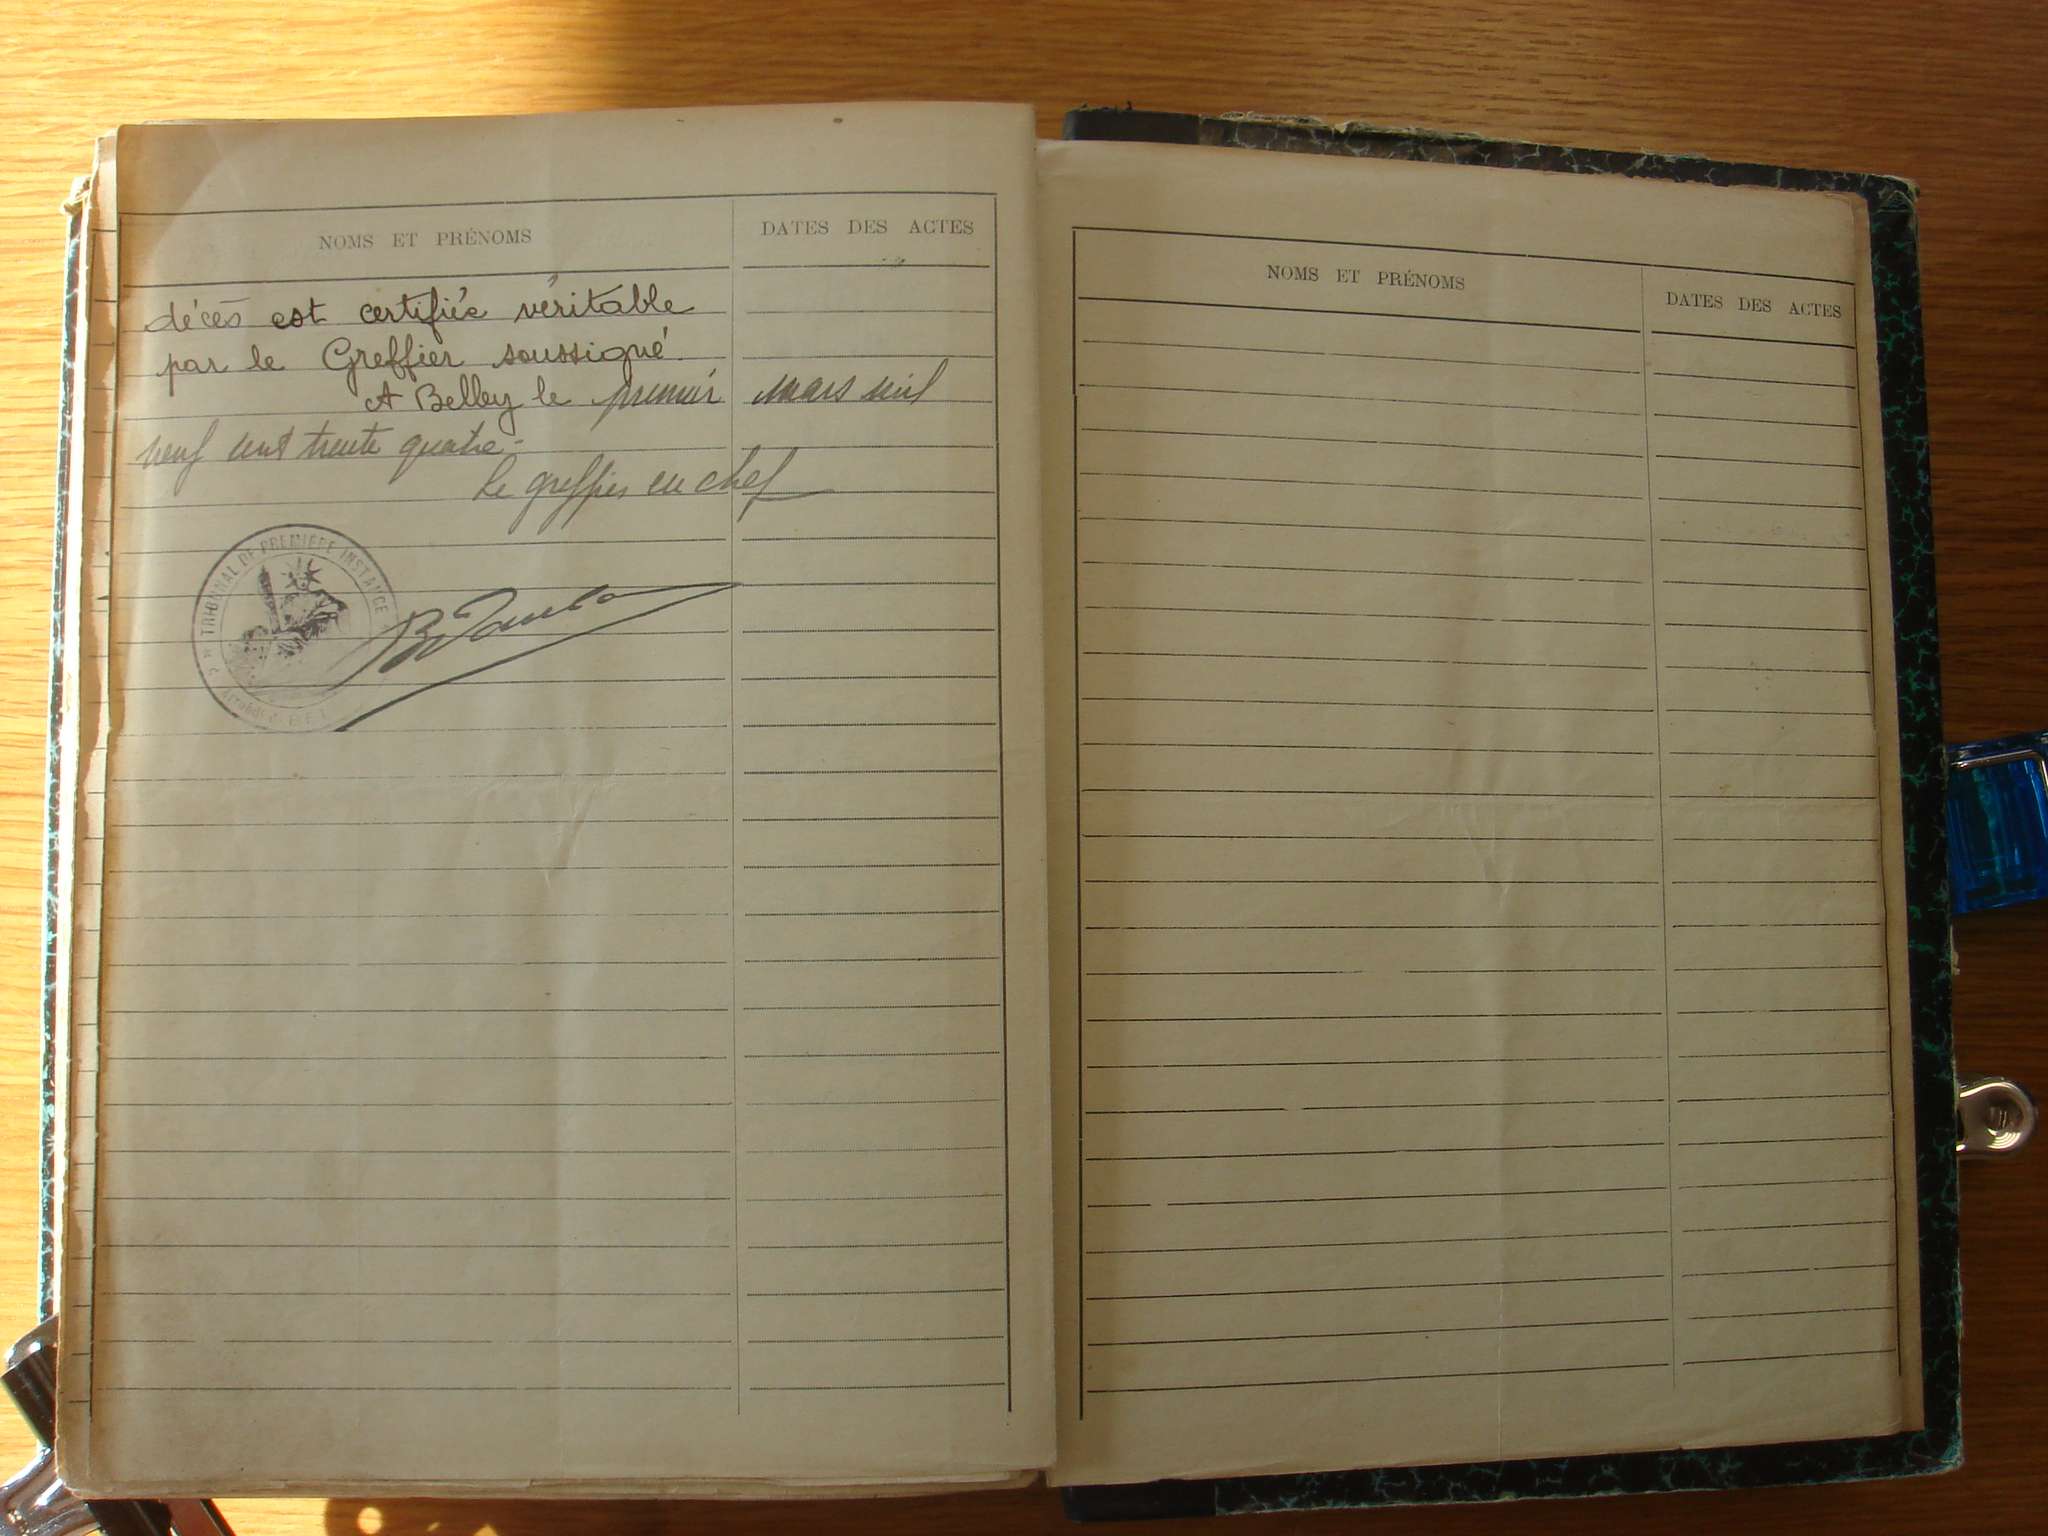 NOMS ET PRÉNOMS
DATES DES ACTES
décès est certifiée véritable
par le Greffier soussigné.
A Belley le premier mars mil
neuf cent trente quatre -
Le greffier en chef
TRIBUNAL DE PREMIÈRE INSTANCE
NOMS ET PRÉNOMS
DATES DES ACTES